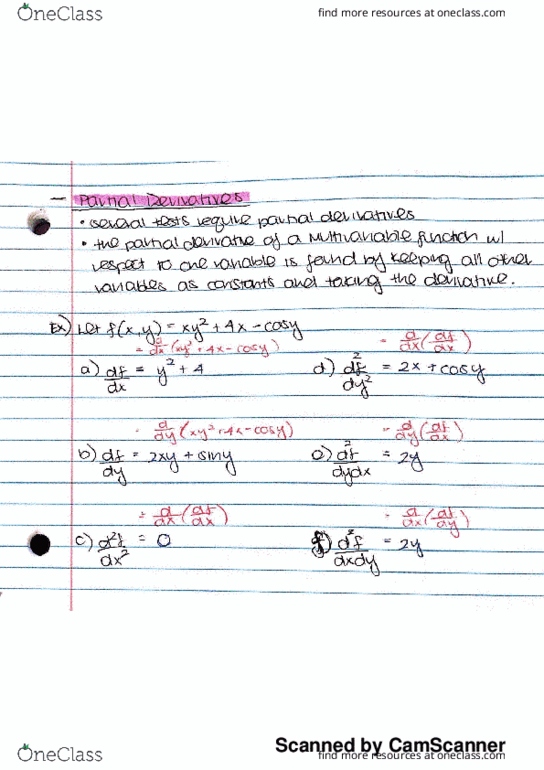 OneClass
find more resources at oneclass.com
— Partial Derivatives
• several tests require partial derivatives
• the partial derivative of a multivariable function w/
respect to one variable is found by keeping all other
variables as constants and taking the derivative.
Ex) Let f(x,y) = xy² + 4x - cosy
= d/dx (xy² + 4x - cosy)
a) df/dx = y² + 4
= d/dx (df/dx)
d) d²f/dy² = 2x + cosy
= d/dy (xy² + 4x - cosy)
b) df/dy = 2xy + siny
= d/dy (df/dx)
e) d²f/dydx = 2y
= d/dx (df/dx)
c) d²f/dx² = 0
= d/dx (df/dy)
f) d²f/dxdy = 2y
Scanned by CamScanner
OneClass
find more resources at oneclass.com